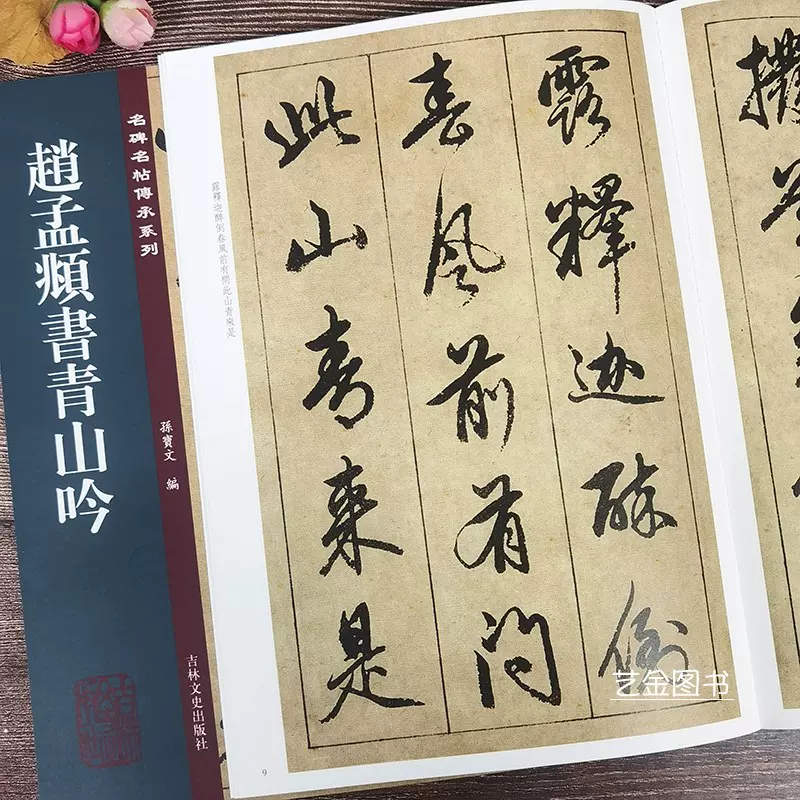 名碑名帖傳承系列
趙孟頫書青山吟
孫寶文 編
吉林文史出版社
露釋迹醉倒
春風前有問
此山青來是
露釋迹醉倒春風前有問此山青來是
9
艺金图书